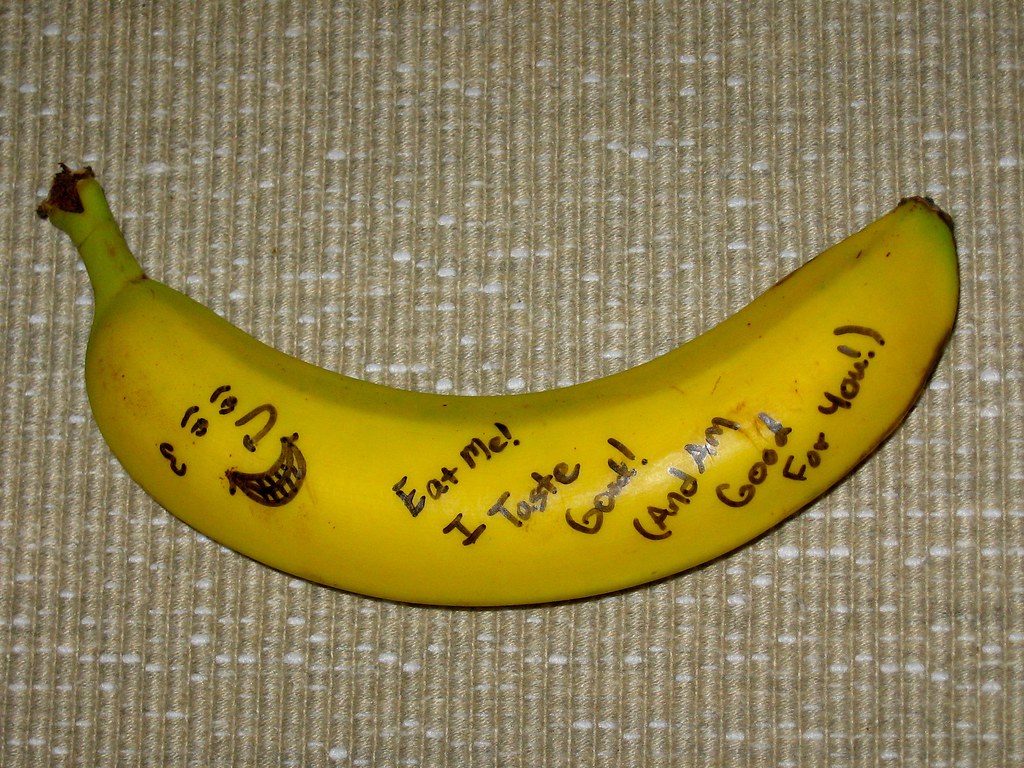 Eat Me!
I Taste
Good!
(And AM
Good
For You!)